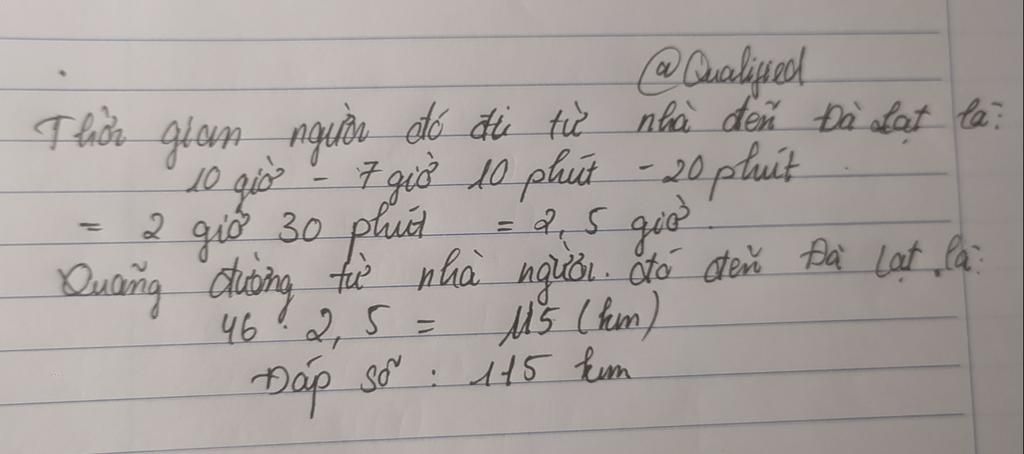 @Qualified
Thời gian người đó đi từ nhà đến Đà Lạt là:
10 giờ - 7 giờ 10 phút - 20 phút
= 2 giờ 30 phút = 2,5 giờ
Quãng đường từ nhà người đó đến Đà Lạt là:
46 . 2,5 = 115 (km)
Đáp số : 115 km